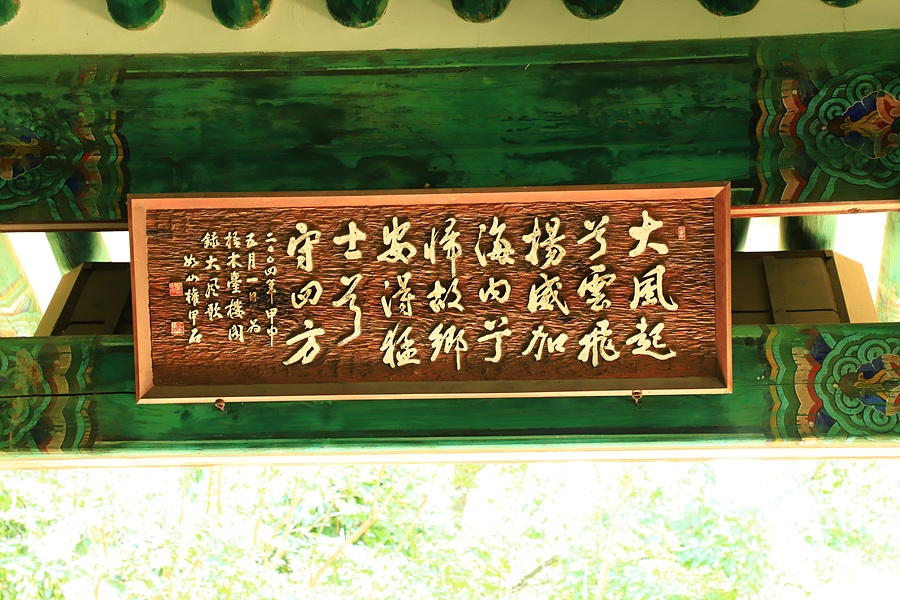 大風起
兮雲飛
揚威加
海内兮
帰故鄉
安得猛
士兮
守四方
二〇〇四年甲申
五月一日為
梧木臺樓閣
錄大風歌
山權甲石